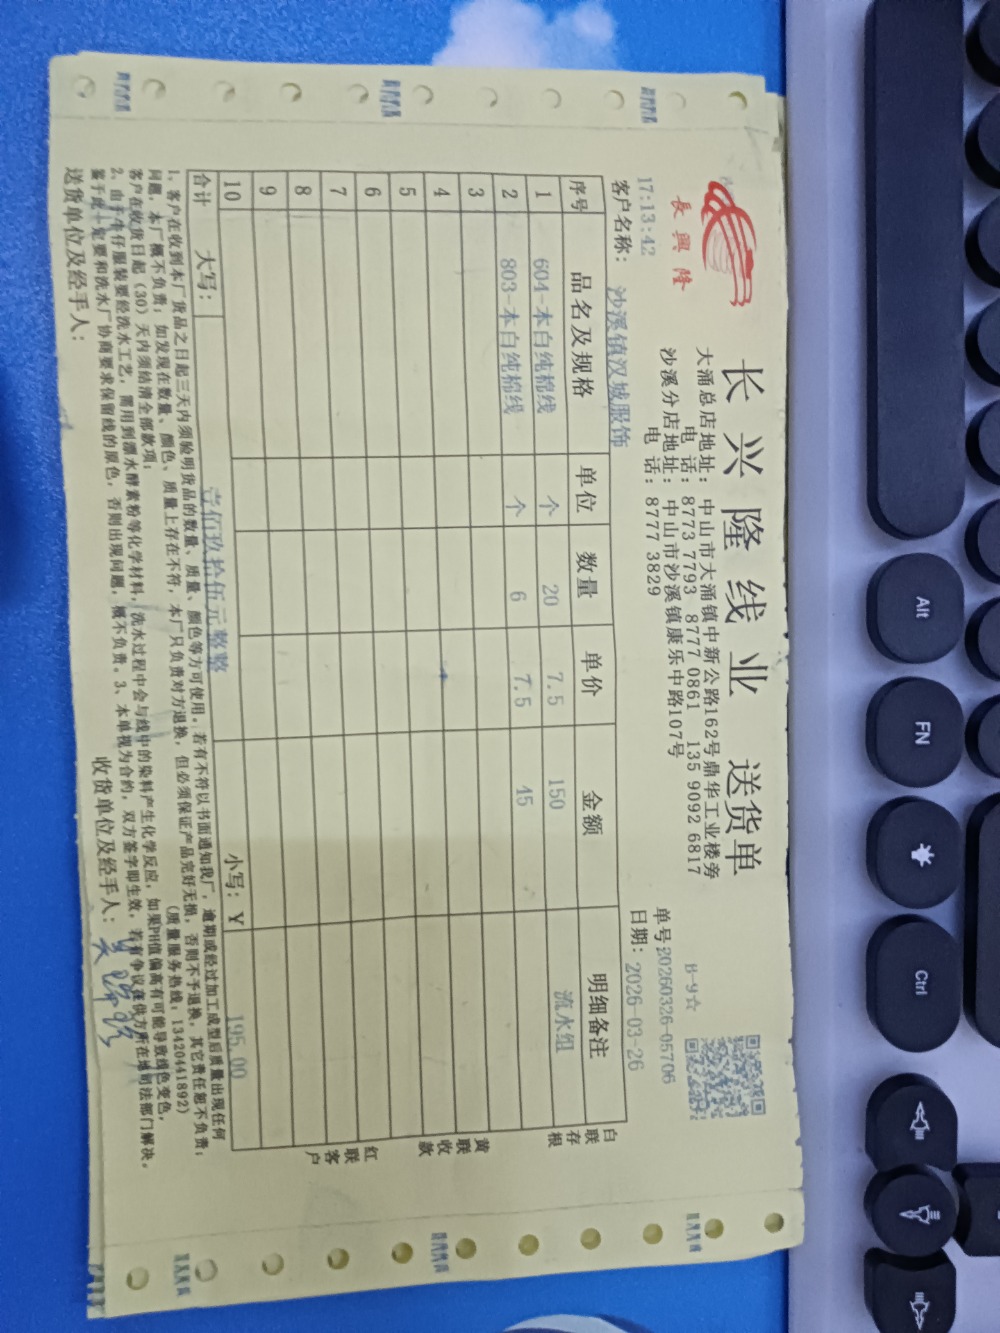 長興隆
长兴隆线业 送货单
大涌总店地址: 中山市大涌镇中新公路162号鼎华工业楼旁
电 话: 8773 7793 8777 0861 135 9092 6817
沙溪分店地址: 中山市沙溪镇康乐中路107号
电 话: 8777 3829
B-9☆
17:13:42
单号20260326-05706
客户名称: 沙溪镇汉城服饰
日期: 2026-03-26
序号 品名及规格 单位 数量 单价 金额 明细备注
1 604-本白纯棉线 个 20 7.5 150 流水组
2 803-本白纯棉线 个 6 7.5 45
3
4
5
6
7
8
9
10
合计 大写: 壹佰玖拾伍元整整 小写: ¥ 195.00
白联存根
黄联收款
红联客户
1、客户在收到本厂货品之日起三天内须验明货品的数量、质量、颜色等方可使用。若有不符以书面通知我厂,逾期或经过加工成型后质量出现任何
问题,本厂概不负责;如发现在数量、颜色、质量上存在不符,本厂只负责对方退换,但必须保证产品完好无损,否则不予退换,其它责任恕不负责;
客户在收货日起(30)天内须结清全部款项; (质量服务热线:13420441892)
2、由于牛仔服装要经洗水工艺,需用到漂水酵素粉等化学材料,洗水过程中会与线中的染料产生化学反应,如果PH值偏高有可能导致线色变色,
鉴于此一定要和洗水厂协商要求保留线的原色,否则出现问题,概不负责。3、本单视为合约,双方签字即生效,若有争议在供方所在地司法部门解决。
送货单位及经手人: 收货单位及经手人:
Alt
FN
Ctrl